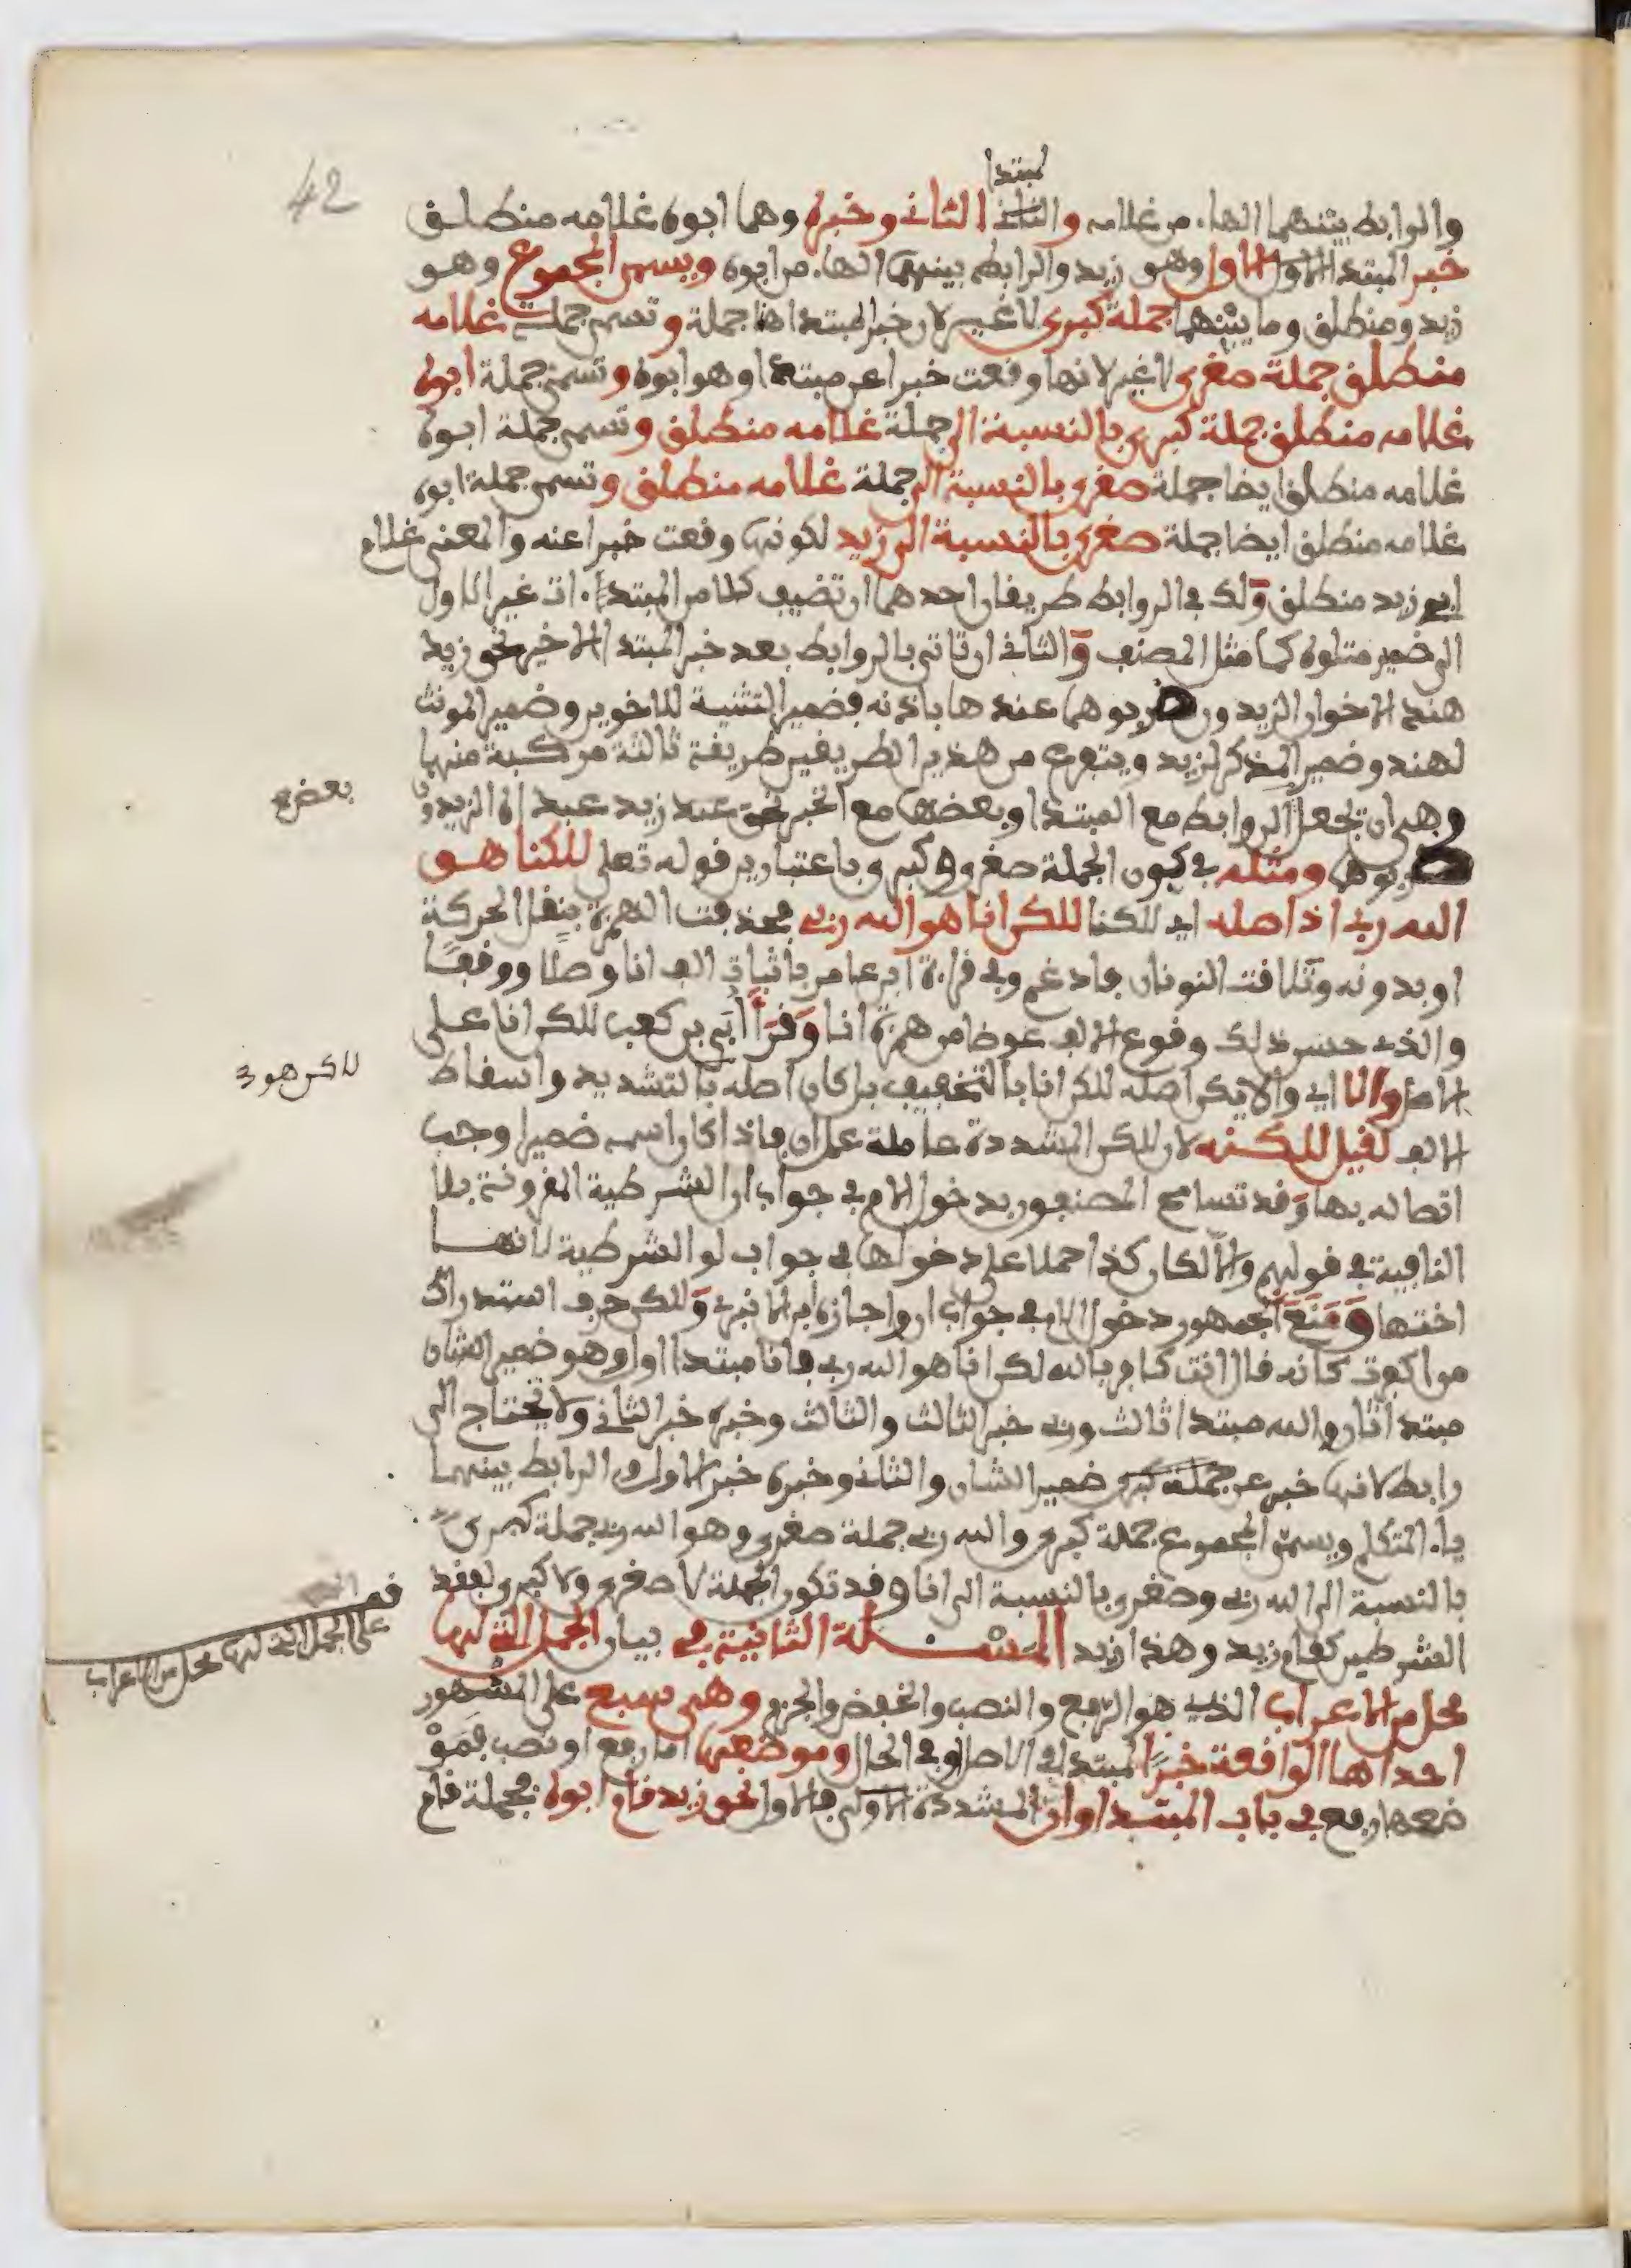 42
مبتدا
والرابط بينهما الهاء من غلامه والثاني الثاني وخبره وهما ابوه غلامه منطلق
خبر المبتدا الاول الاول وهو زيد والرابط بينهما الهاء من ابوه ويسمى المجموع وهو
زيد ومنطلق وما بينهما جملة كبرى لا غير لان خبر المبتدا فيها جملة وتسمى جملة غلامه
منطلق جملة صغرى لا غير لانها وقعت خبرا عن مبتدا وهو ابوه وتسمى جملة ابوه
غلامه منطلق جملة كبرى بالنسبة الى جملة غلامه منطلق وتسمى جملة ابوه
غلامه منطلق ايضا جملة صغرى بالنسبة الى جملة غلامه منطلق وتسمى جملة ابوه
غلامه منطلق ايضا جملة صغرى بالنسبة الى زيد لكونها وقعت خبرا عنه والمعنى غلام
ابي زيد منطلق ولك في الروابط طريقان احدهما ان تضيف كلا من المبتدءات غير الاول
الى ضمير متلوه كما مثل المصنف والثاني ان تاتي بالروابط بعد خبر المبتدا الاخير نحو زيد
هند الاخوان الزيدون ضاربوهما عندها باذنه فضمير التثنية للاخوين وضمير المونث
لهند وضمير المذكر لزيد ويتفرع من هذين الطريقين طريقة ثالثة مركبة منهما
وهي ان تجعل الروابط مع المبتدا وبعضها مع الخبر نحو عبد زيد عبداه الزيدون
بعض
ضاربوهما ومثله في كون الجملة صغرى وكبرى باعتبارين قوله تعلى لاكنا هو
الله ربي اذ اصله اي لاكنا لاكن انا هو الله ربي فحذفت الهمزة بنقل الحركة
او بدونه وتلاقت النونان فادغم وفي قراءة ابن عامر باثبات الف انا وصلا ووقفا
والذي حسن ذلك وقوع الالف عوضا من همزة انا وقرا ابي بن كعب لاكن انا على
الاصل والا اي والا يكن اصله لاكن انا بالتخفيف بل كان اصله بالتشديد واسقاط
لاكن هو
الالف لقيل لاكنه لان لاكن المشددة عاملة عمل ان فاذا كان اسمها ضميرا وجب
اتصاله بها وقد تسامح المصنفون بدخول اللام في جواب ان الشرطية المقرونة بلا
النافية في قولهم والا لكان كذا حملا على دخولها في جواب لو الشرطية لانها
اختها ومنع الجمهور دخول اللام في جواب ان واجازه ابن الانباري ولاكن حرف استدراك
من اكفرت كانه قال انت كافر بالله لكن انا هو الله ربي فانا مبتدا اول وهو ضمير الشان
مبتدا ثان والله مبتدا ثالث وربي خبر الثالث والثالث وخبره خبر الثاني ولا يحتاج الى
رابط لانها خبر عن ضمير الشان والثاني وخبره خبر الاول والرابط بينهما
ياء المتكلم ويسمى المجموع جملة كبرى والله ربي جملة صغرى وهو الله ربي جملة كبرى
بالنسبة الى الله ربي وصغرى بالنسبة الى انا وقد تكون الجملة لا صغرى ولا كبرى لفقد
الشرطين كقام زيد وهذا زيد المسئلة الثانية في بيان الجمل التي لها
قف
على الجمل التي لها محل من الاعراب
محل من الاعراب الذي هو الرفع والنصب والخفض والجزم وهي سبع على المشهور
احداها الواقعة خبرا لمبتدا في الاصل او في الحال وموضعها اما رفع او نصب فمو
ضعها رفع في باب المبتدا وان المشددة الاولى فالاول نحو زيد قام ابوه فجملة قام